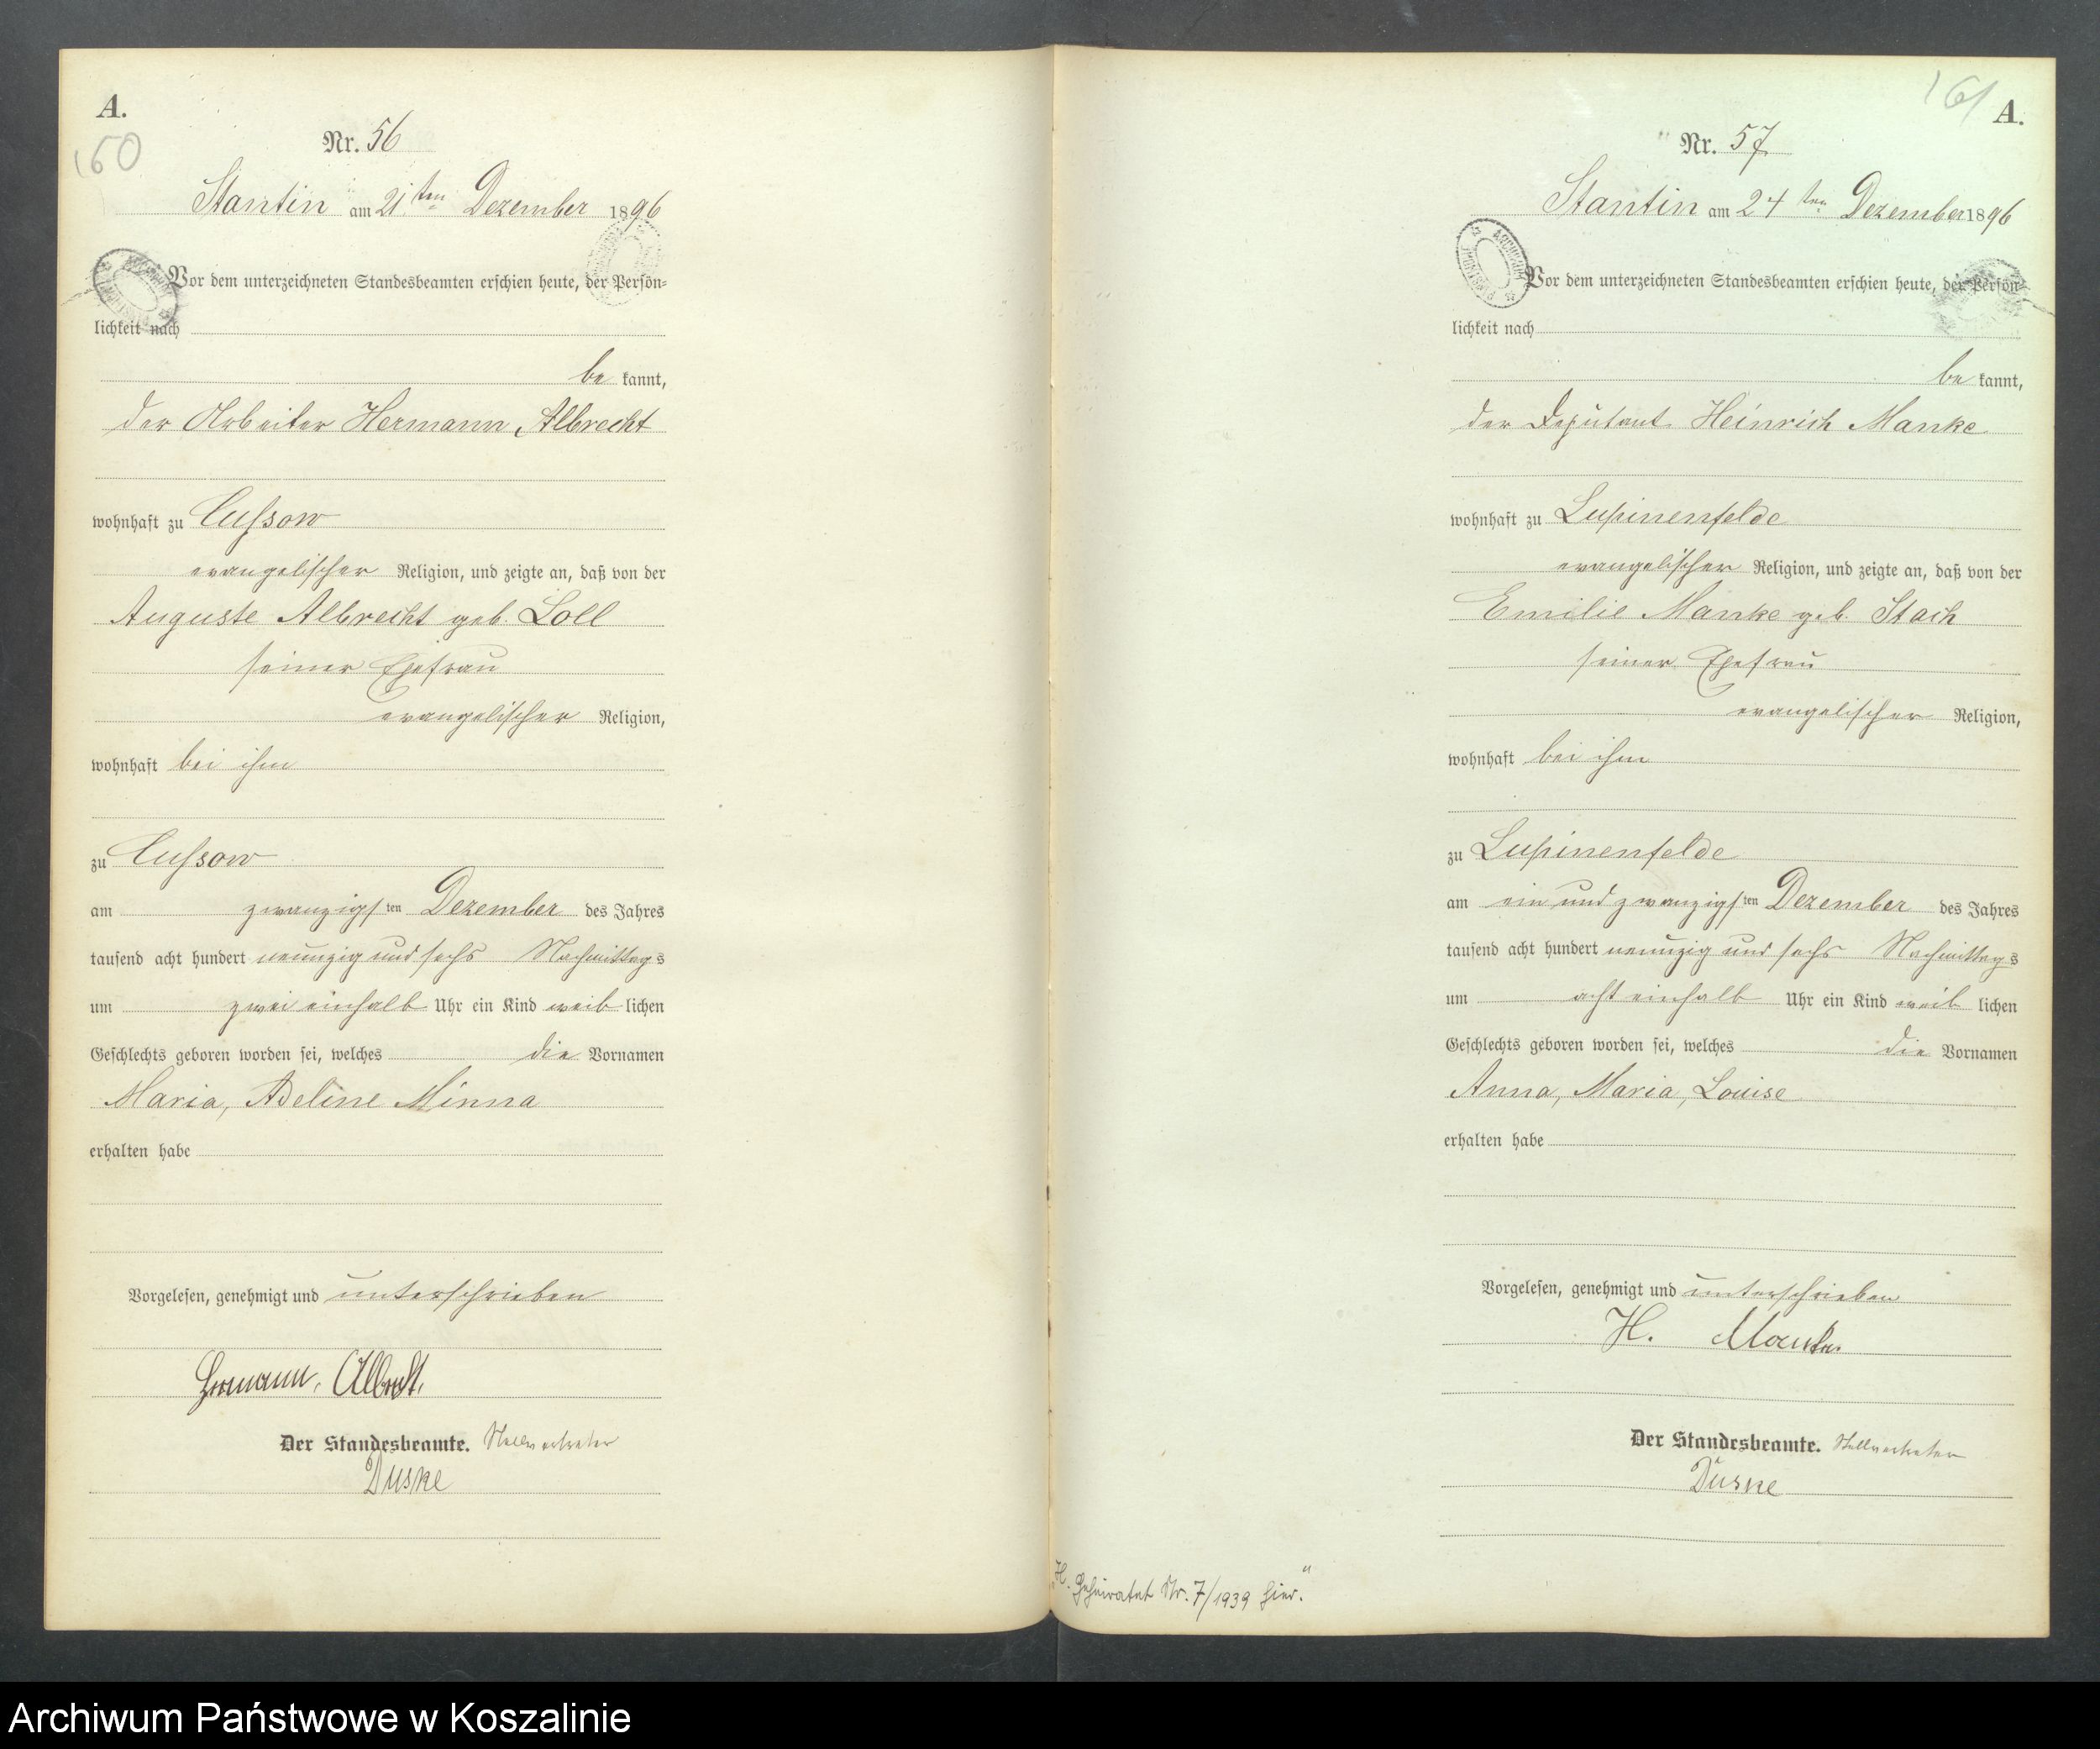 A.
160
Nr. 56
Stantin am 21ten Dezember 1896
Vor dem unterzeichneten Standesbeamten erschien heute, der Persön-
lichkeit nach
be kannt,
der Arbeiter Hermann Albrecht
wohnhaft zu Cussow
evangelischer Religion, und zeigte an, daß von der
Auguste Albrecht geb. Loll
seiner Ehefrau
evangelischer Religion,
wohnhaft bei ihm
zu Cussow
am zwanzigsten Dezember des Jahres
tausend acht hundert neunzig und sechs Nachmittags
um zwei einhalb Uhr ein Kind weib lichen
Geschlechts geboren worden sei, welches die Vornamen
Maria, Adeline Minna
erhalten habe
Vorgelesen, genehmigt und unterschrieben
Hermann, Albrecht,
Der Standesbeamte. Stellvertreter
Duske
161
A.
Nr. 57
Stantin am 24ten Dezember 1896
Vor dem unterzeichneten Standesbeamten erschien heute, der Persön-
lichkeit nach
be kannt,
der Deputant Heinrich Manke
wohnhaft zu Lupinenfelde
evangelischer Religion, und zeigte an, daß von der
Emilie Manke geb. Stach
seiner Ehefrau
evangelischer Religion,
wohnhaft bei ihm
zu Lupinenfelde
am ein und zwanzigsten Dezember des Jahres
tausend acht hundert neunzig und sechs Nachmittags
um acht einhalb Uhr ein Kind weib lichen
Geschlechts geboren worden sei, welches die Vornamen
Anna, Maria, Louise
erhalten habe
Vorgelesen, genehmigt und unterschrieben
H. Manke
Der Standesbeamte. Stellvertreter
Duske
"H. Geheiratet Nr. 7/1939 hier."
Archiwum Państwowe w Koszalinie